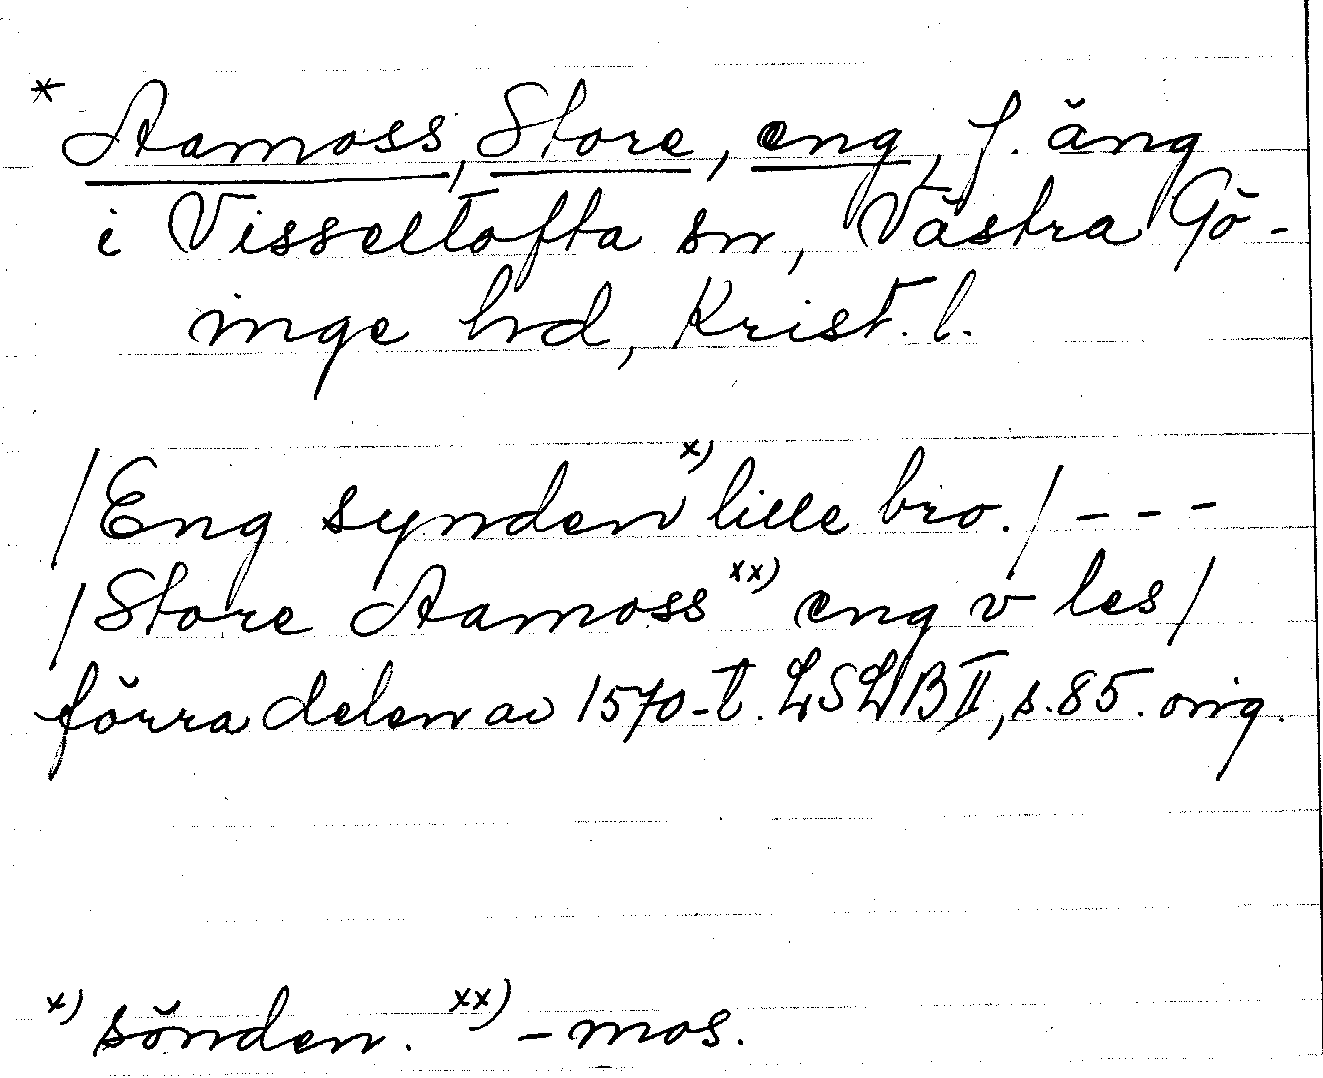 * Aamoss, Store, eng, f. äng
i Visseltofta sn, Västra Gö-
inge hd, Krist. l.
/Eng synden x) lille bro./ - - -
/Store Aamoss xx) eng v les/
förra delen av 1570-t. LSLB II, s. 85. orig.
x) sönden. xx) -mos.